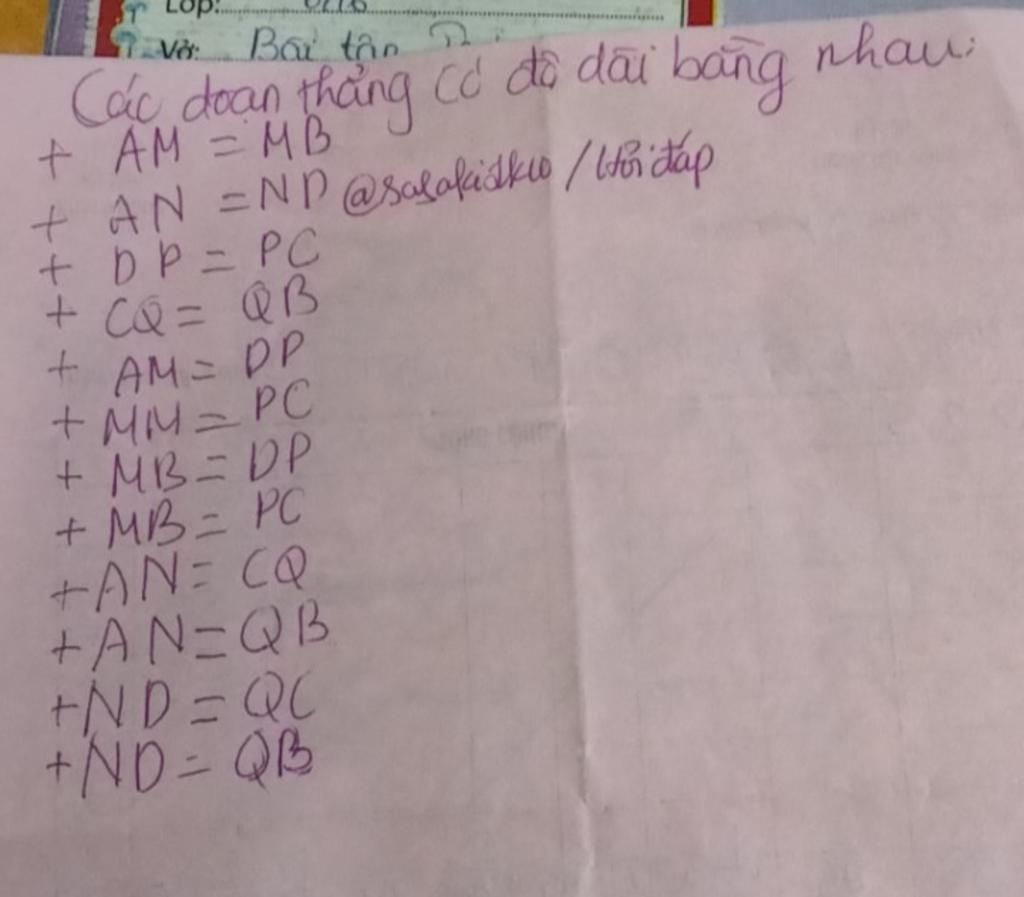 Lớp:
Vở: Bài tập
Các đoạn thẳng có độ dài bằng nhau:
+ AM = MB
+ AN = ND @sasakidkw / lời đáp
+ DP = PC
+ CQ = QB
+ AM = DP
+ MM = PC
+ MB = DP
+ MB = PC
+ AN = CQ
+ AN = QB
+ ND = QC
+ ND = QB